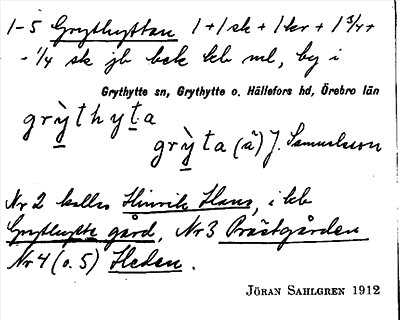 1-5 Grythyttan 1+1 sk + 1 kr + 1 3/4 +
- 1/4 sk jb bek kb ml, by i
Grythytte sn, Grythytte o. Hällefors hd, Örebro län
grỳthyta
grỳta (ä) J. Samuelsson
Nr 2 kallas Hinrik Hans, i kb
Grythytte gård, Nr 3 Prästgården
Nr 4 (o. 5) Heden.
JÖRAN SAHLGREN 1912